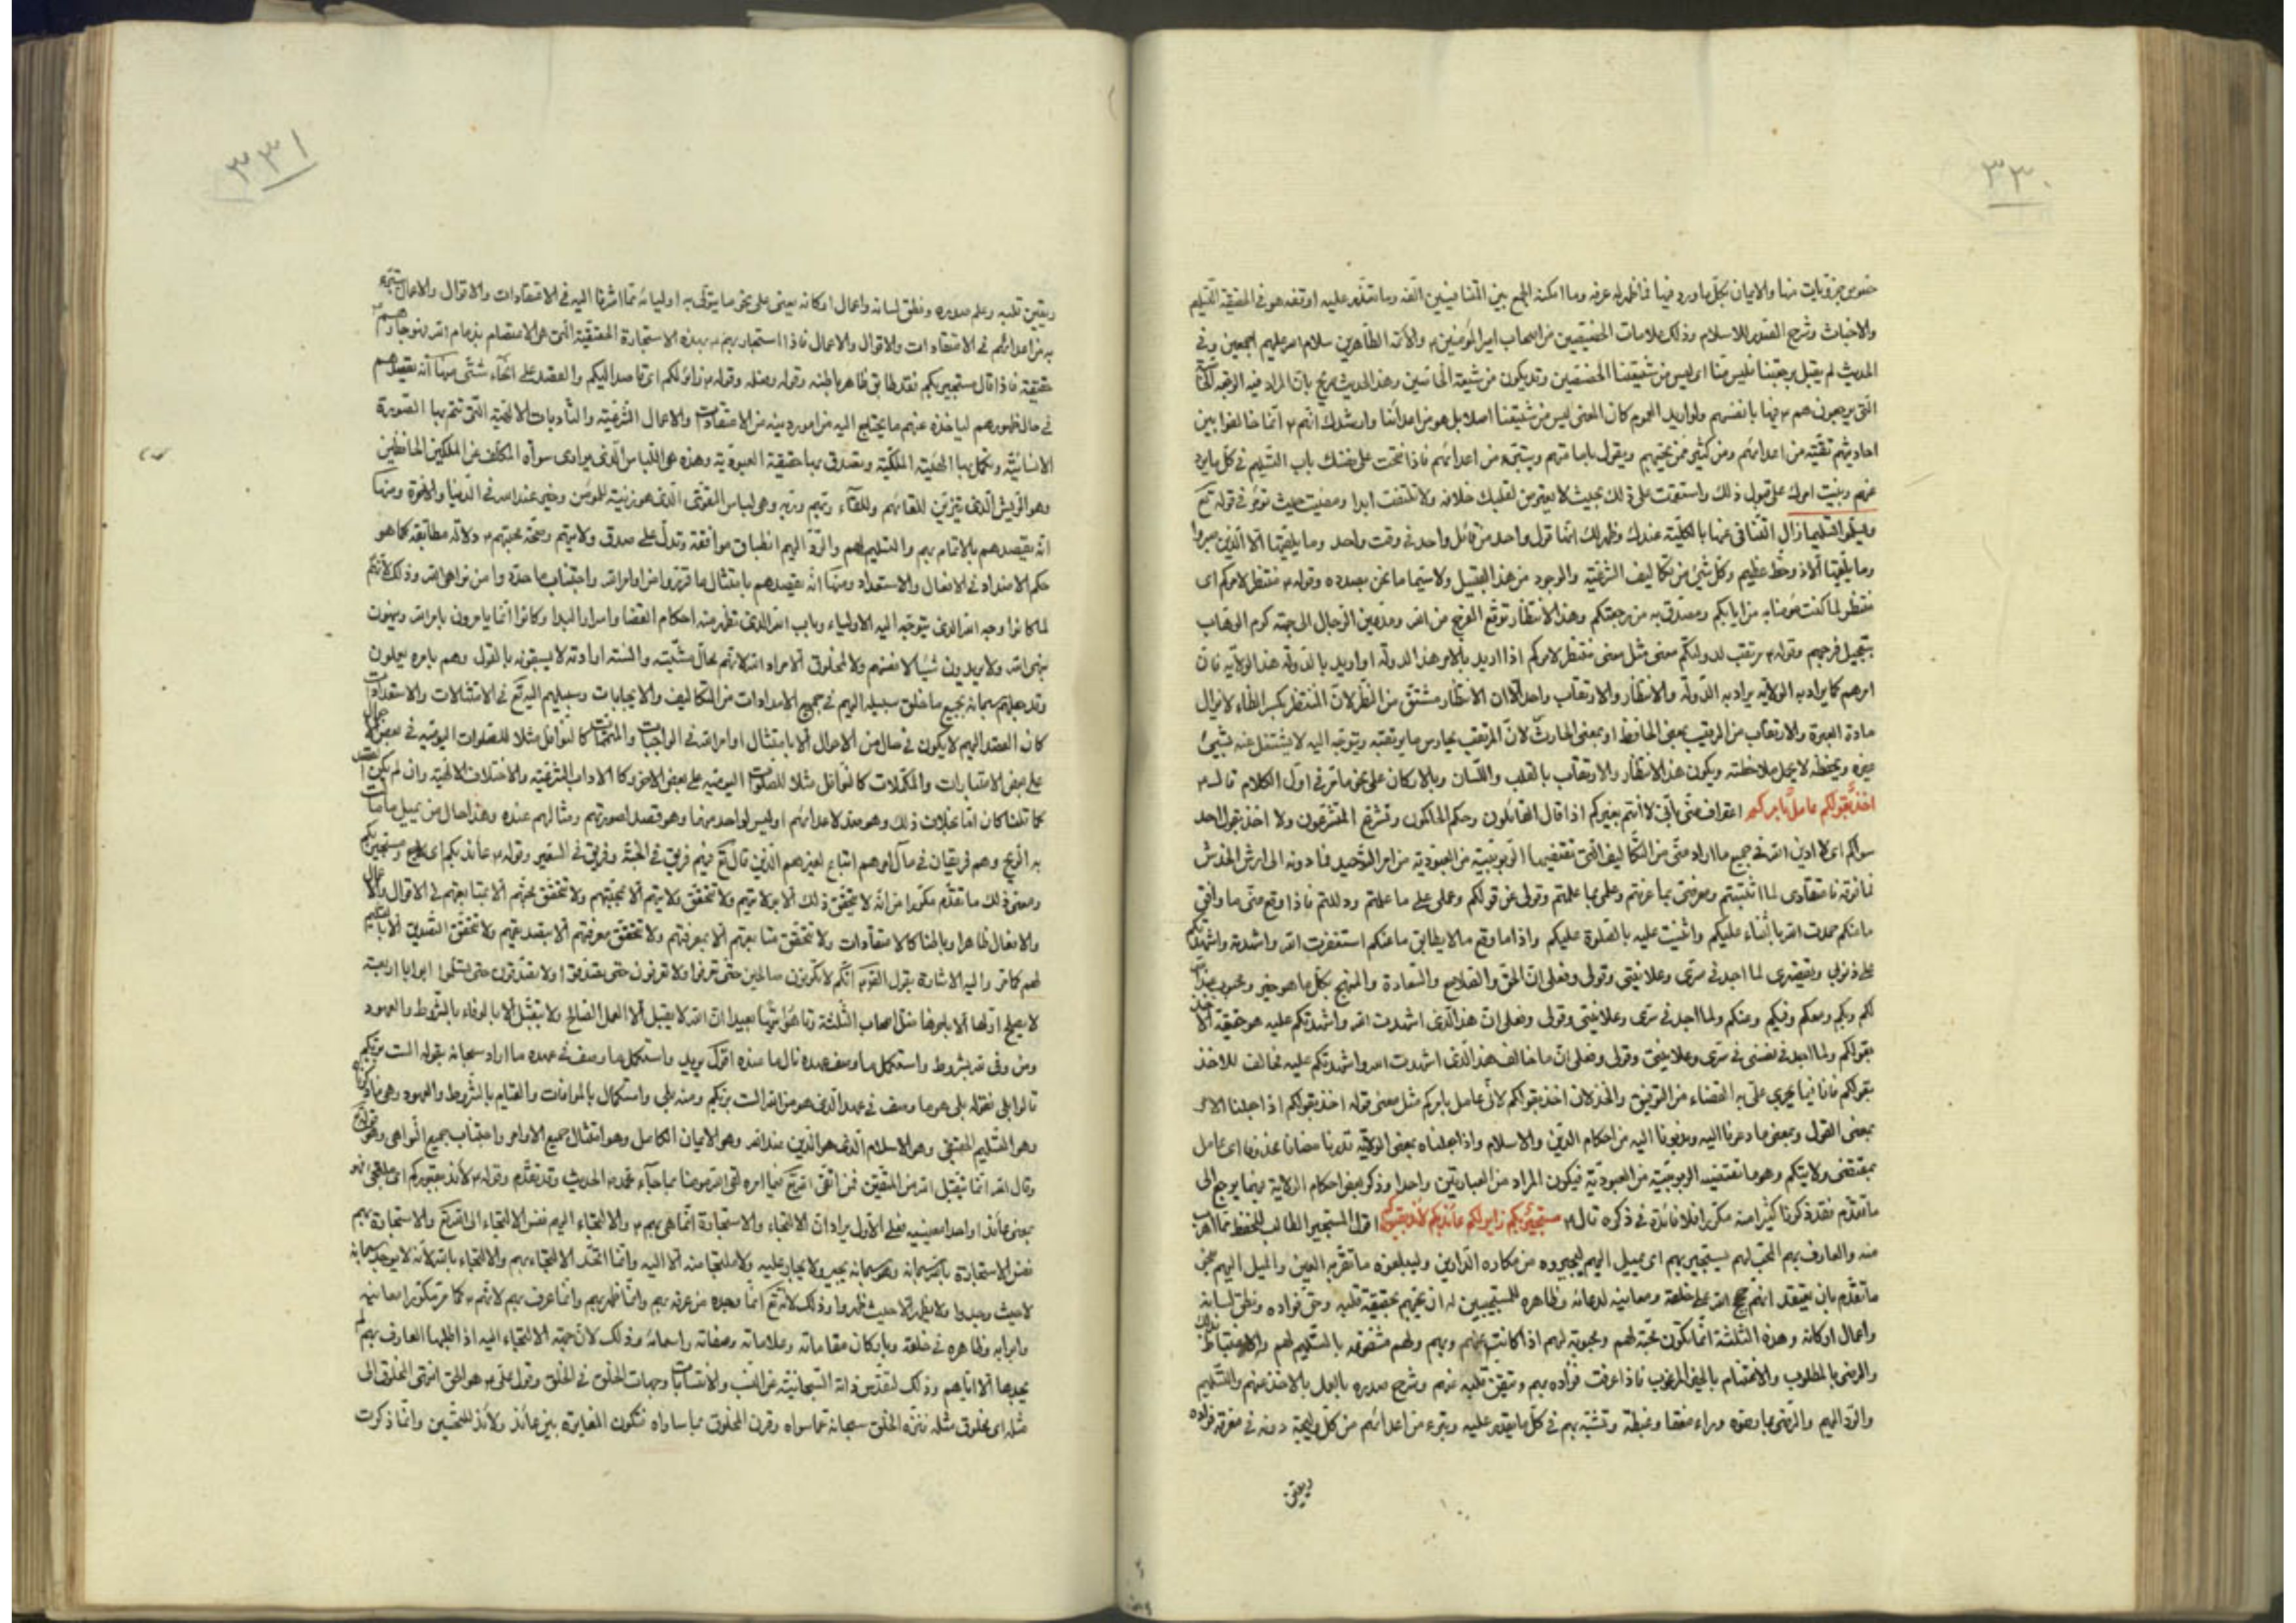 ٣٣٠
والايمان بكل ما ورد فيها فما ظهر له عرفه وما امكنه الجمع بين المتنافيين الفه وما تعذر عليه اوقفه هو في الحقيقة التسليم
والاخبات وشرح الصدور للاسلام وذلك علامات الخصيصين من اصحاب امير المؤمنين والائمة الطاهرين سلام الله عليهم اجمعين وفي
الحديث لم يقبل برجعتنا فليس منا اى ليس من شيعتنا الخصيصين وقد يكون من شيعته وهذا الحديث بان المراد فيه الرجعة
التي يرجعون هم فيها بانفسهم ولو اريد العموم كان المعنى ليس من شيعتنا اصلا بل هو من اعدائنا وارشدك انهم انما خالفوا بين
احاديثهم تقية من اعدائهم ومن كثير من محبيهم ويقول باياتهم ويتبرء من اعدائهم فاذا فتحت على نفسك باب التسليم في كل ما يرد
عنهم وبنيت امرك على قبول ذلك واستقمت على ذلك بحيث لا يعترض لقلبك خلافه ولا تلتفت ابدا ومضيت حيث تؤمر في قوله تع
ويسلموا تسليما زال التنافي عنها بالكلية عندك وظهر لك انها قول واحد من قائل واحد في وقت واحد وما يلقيها الا الذين صبروا
وما يلقيها الا ذو حظ عظيم وكل شئ من تكاليف الشرعية والوجود من هذا القبيل ولا سيما ما نحن بصدده وقوله منتظر لامركم اى
منتظر لما كنت مؤمنا به من ايابكم ومصدق به من رجعتكم وهذا الانتظار توقع الفرج من الله ومد عين الرجال الى جهة كرم الوهاب
بتعجيل فرجهم وقوله مرتقب لدولتكم معنى مثل معنى منتظر لامركم اذا اريد بالامر هذا الدولة او اريد بالدولة هذا الولاية فان
امرهم كما يراد به الولاية يراد به الدولة والانتظار والارتقاب واحد الا ان الانتظار مشتق من النظر لان المنتظر بكسر الظاء لا يزال
مادة العبرة والارتقاب من الرقيب بمعنى الحافظ او بمعنى الحارث لان المرتقب يحارس ما يرتقبه ويتوجه اليه لا يشتغل عنه بشئ
غيره ويحفظه لا يهمل ملاحظته ويكون هذا الانتظار والارتقاب بالقلب واللسان وبالاركان على نحو ما مر في اول الكلام قال
اخذ بقولكم عامل بامركم اعتراف منى باني لا أتم بغيركم اذا قال القائلون وحكم الحاكمون وتشرع المتشرعون ولا اخذ بقول احد
سواكم اى لا ادين الله في جميع ما اراد منى من التكاليف التي تقتضيها الربوبية من العبودية من امر التوحيد فما دونه الى ارش الخدش
فما فوقه فاعتقادى لما اثبتتم ومعرفتي بما عرفتم وعلمى بما علمتم وقولى عن قولكم وعملى على ما علمتم ودللتم فاذا وقع منى ما وافق
ما عنكم حمدت الله بالثناء عليكم واثنيت عليه بالصلوة عليكم واذا ما وقع ما لا يطابق ما عنكم استغفرت الله واشهده واشهدكم
على ذنوبى وتقصيرى لما اجد في سرى وعلانيتى وقولى وفعلى ان الحق والفلاح والسعادة والمنهج بكل ما هو خير ومحبوب
لكم وبكم ومعكم وفيكم وعنكم ولما اجد في سرى وعلانيتى وقولى وفعلى ان هذا الذى اشهدت الله واشهدتكم عليه هو حقيقة الاخذ
بقولكم ولما اجد في نفسى في سرى وعلانيتى وقولى وفعلى ان ما خالف هذا الذى اشهدت الله واشهدتكم عليه مخالف للاخذ
بقولكم فانا فيما يجرى على به القضاء من التوفيق والخذلان اخذ بقولكم لأنى عامل بامركم مثل معنى قوله اخذ بقولكم اذا جعلنا الامر
بمعنى القول وبمعنى ما دعونا اليه وندبونا اليه من احكام الدين والاسلام واذا جعلناه بمعنى الولاية قدرنا مضافا محذوفا اى عامل
بمقتضى ولايتكم وهو ما تقتضيه الربوبية من العبودية فيكون المراد من العبارتين واحدا وذكر بعض احكام الولاية فيما يرجع الى
ما تقدم فقد ذكرنا كثيرا منه مكررا فلا فائدة في ذكره قال مستجير بكم زاير لكم عائذ بكم لائذ بقبوركم اقول المستجير الطالب للحفظ مما هرب
منه والعارف بهم المحب لهم يستجير بهم اى يميل اليهم ليجيروه من مكاره الدارين وليبلغوه ما تقر به العين والميل اليهم على
ما تقدم بان يعتقد انهم حجج الله على خلقه ومعانيه لدعائه وظاهره للمستجيبين له ان يحبهم بحقيقة قلبه وحق فؤاده ونطق لسانه
واعمال اركانه وهذه الثلثة انما تكون محبة لهم ومحبوبة لهم اذا كانت عنهم وبهم ولهم مشفوعة بالتسليم لهم والاغتباط بذلك
والرضى بالمطلوب والاغتنام بالحظ المرغوب فاذا عرفت فؤاده بهم وتيقن قلبه عنهم وشرح صدره بالعمل بالاخذ عنهم والتسليم
والرد اليهم والرضى بما رضوه وراء معتقدا وغبطة وتشبه بهم في كل ما يقدر عليه ويتبرء من اعدائهم من كل وليجة دونه في معرفة فؤاده
ويقين
٣٣١
ويقين قلبه وعلم صدره ونطق لسانه واعمال اركانه يعنى على نحو ما يتولى به اوليائه مما اشرنا اليه في الاعتقادات والاقوال والاعمال يتبرء
به من اعدائهم في الاعتقادات والاقوال والاعمال فاذا استجار بهم بهذه الاستجارة الحقيقية التى هى الاعتصام بذمام الله
حقيقة فاذا قال مستجير بكم فقد طابق ظاهره باطنه وقوله وعمله وقوله زائر لكم اى قاصد اليكم والقصد على انحاء شتى منها انه يقصدهم
في حال ظهورهم ليأخذ عنهم ما يحتاج اليه من امور دينه من الاعتقادات والاعمال الشرعية والتأديبات الالهية التى تتم بها الصورة
الانسانية وتكمل بها الحلية الملكية وتصدق بها حقيقة العبودية وهذه هى اللباس الذى يوارى سوآة المكلف عن الملكين الحافظين
وهو الريش الذى يتزين للقائهم وللقاء ربهم وربه وهى لباس التقوى الذى هو زينة المؤمن وخير عند الله في الدنيا والاخرة ومنها
انه يقصدهم بالائتمام بهم والتسليم لهم والرد اليهم انطباق موافقة وتدل على صدق ولايتهم وصحة محبتهم دلالة مطابقة كما هو
حكم الامداد في الافعال والاستعداد ومنها انه يقصدهم بامتثال ما قرروا من اوامر الله واجتناب ما حدوا من نواهى الله وذلك لانهم
لما كانوا وجه الله الذى يتوجه اليه الاولياء وباب الله الذى تظهر منه احكام القضا واسرار البدا وكانوا انما يأمرون بامر الله وينهون
بنهى الله ولا يريدون شيئا لانفسهم ولا لمخلوق الا مراد الله لانهم محال مشيته والسنة ارادته لا يسبقونه بالقول وهم بامره يعملون
وقد جعلهم سبحانه بجميع ما خلق سبيله اليهم في جميع الامدادات من التكاليف والايجابات وسبيلهم اليه تع في الامتثالات والاستعدادات
كان القصد اليهم لا يكون في حال من الاحوال الا بامتثال اوامر الله في الواجبات والمتممات كالنوافل مثلا للصلوات اليومية في بعض الاحوال
على بعض الاعتبارات والمكملات كالنوافل مثلا للصلوات اليومية على بعض الاخر وكالاداب الشرعية والاخلاق الالهية وان لم يكن القصد
كما قلنا كان اما بخلاف ذلك وهو قصد لاعدائهم او ليس لواحد منهما وهو قصد لصورتهم ومثالهم عنده وهذا حال من يميل ما مالت
به الريح وهم فريقان في مآل امرهم اتباع لغيرهم الذين قال تع فيهم فريق في الجنة وفريق في السعير وقوله عائذ بكم اى ومستجير بكم
ومعنى ذلك ما تقدم مكررا من انه لا يتحقق ذلك الا بولايتهم ولا تتحقق ولايتهم الا بمحبتهم ولا تتحقق محبتهم الا بمتابعتهم في الاقوال والاعمال
والافعال ظاهرا وباطنا كالاعتقادات ولا تتحقق متابعتهم الا بمعرفتهم ولا تتحقق معرفتهم الا بتصديقهم ولا تتحقق التصديق الا بالتسليم
لهم كما مر واليه الاشارة بقول انكم لا تكونون صالحين حتى تعرفوا ولا تعرفون حتى تصدقوا ولا تصدقون حتى تسلموا ابوابا اربعة
لا يصلح اولها الا باخرها ضل اصحاب الثلثة وتاهوا تيها بعيدا ان الله لا يقبل الا العمل الصالح ولا يتقبل الا بالوفاء بالشروط والعهود
ومن وفى لله بشروطه واستكمل ما وصف في عهده نال ما عنده اقول يريد واستكمل ما وصف في عهده ما اراد سبحانه بقوله الست بربكم
قالوا بلى فقوله بلى هو ما وصف في عهد الذى هو من الله الست بربكم ومنه بلى واستكمال بالموافات والقيام بالشروط والعهود
وهو التسليم الحقيقى وهو الاسلام الذى هو الدين عند الله وهو الايمان الكامل وهو امتثال جميع الاوامر واجتناب جميع النواهى
وقال الله انما يتقبل الله من المتقين فمن اتقى الله تع فيما امره لقى الله مؤمنا بما جاء محمد الحديث وقد تقدم وقوله لائذ بقبوركم اى
بمعنى عائذ او احد معنييه فعلى الاول يراد ان الالتجاء والاستجارة انما هى بهم والالتجاء اليهم نفس الالتجاء الى الله تع والاستجارة بهم
نفس الاستجارة بالله سبحانه وهو سبحانه يجير ولا يجار عليه ولا ملتجا منه الا اليه وانما اتحد الالتجاء بهم والالتجاء بالله لانه لا يوجد سبحانه
لا حيث وجدوا ولا يظهر الا حيث ظهروا وذلك لانه تع انما وجده من عرفه بهم وانما ظهر بهم وانما عرف بهم لانهم كما مر مكررا معانيه
وابوابه وظاهره في خلقه وباركان مقاماته وعلاماته وصفاته واسمائه وذلك لان جهة الالتجاء اليه اذا طلبها العارف بهم لم
يجدها الا اياهم وذلك لتقدس ذاته السبحانية عن النسب والانتسابات وجهات الخلق في الخلق وقول على هو الحق انتهى المخلوق الى
مثله اى مخلوق مثله فنزه الخلق سبحانه عما سواه وقرن المخلوق بما ساواه فتكون المغايرة بين عائذ ولائذ للتحسين وانما ذكرت